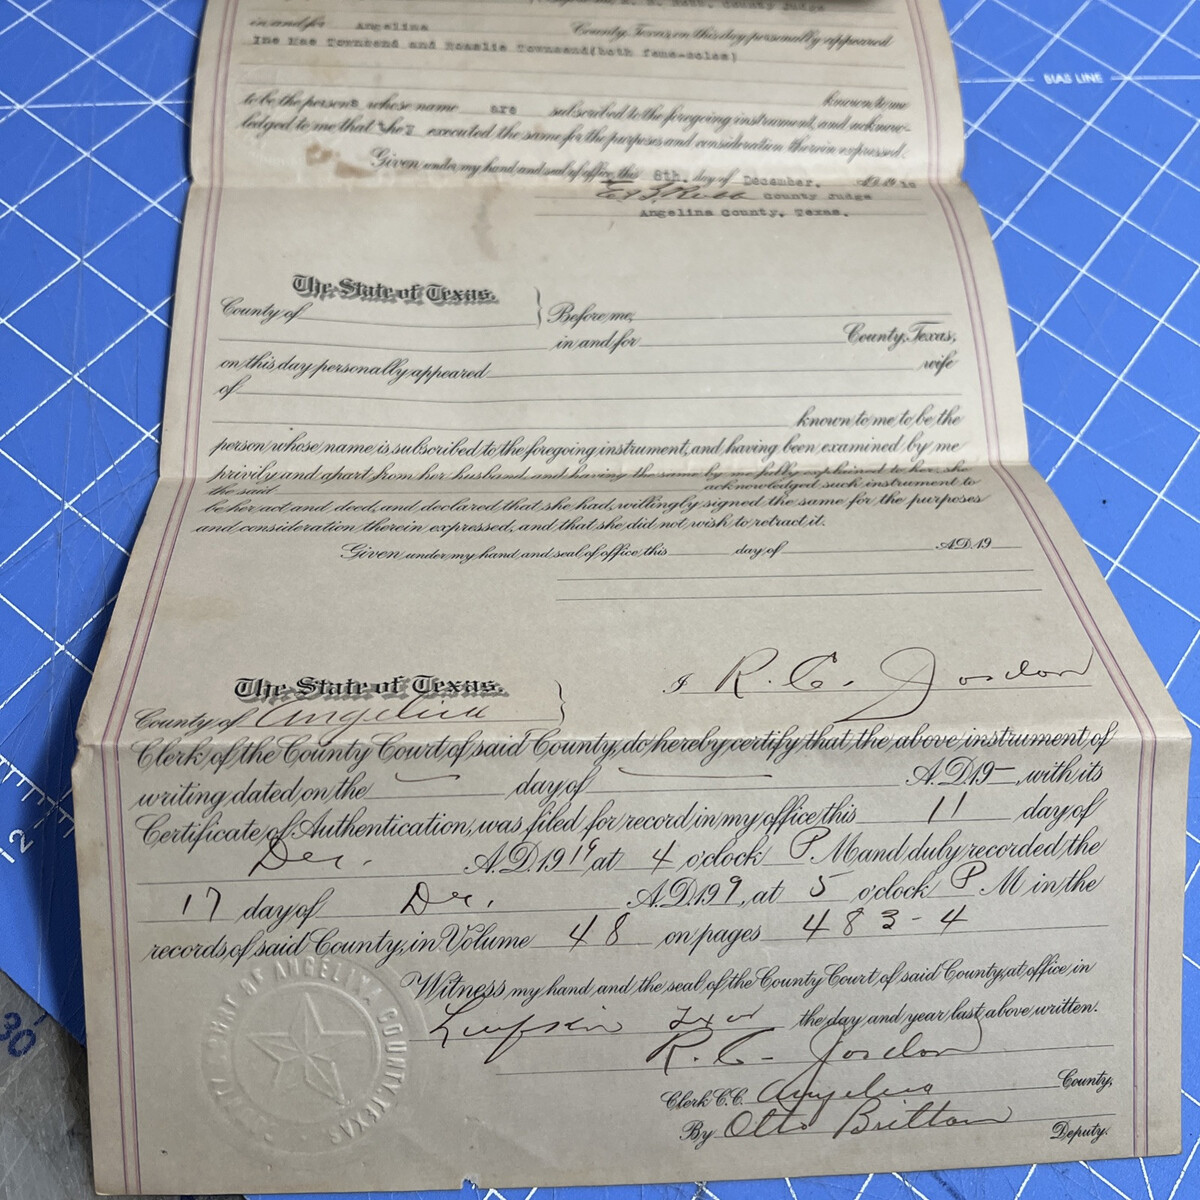 County Judge
in and for Angelina County, Texas, on this day personally appeared
Ine Mae Townsend and Rosalie Townsend(both feme-soles)
known to me
to be the persons whose name are subscribed to the foregoing instrument, and acknow-
ledged to me that they executed the same for the purposes and consideration therein expressed.
Given under my hand and seal of office this 8th. day of December, A.D. 19
County Judge
Angelina County, Texas.
The State of Texas.
County of } Before me,
in and for County, Texas,
on this day personally appeared wife
of
known to me to be the
person whose name is subscribed to the foregoing instrument, and having been examined by me
privily and apart from her husband and having the same by me fully explained to her, she
the said acknowledged such instrument to
be her act and deed, and declared that she had willingly signed the same for the purposes
and consideration therein expressed, and that she did not wish to retract it.
Given under my hand and seal of office this day of A.D. 19
The State of Texas.
County of Angelina } I R. C. Jordon
Clerk of the County Court of said County, do hereby certify that the above instrument of
writing dated on the — day of — A.D. 19—, with its
Certificate of Authentication, was filed for record in my office this 11 day of
Dec. A.D. 19 19 at 4 o'clock P. M and duly recorded the
17 day of Dec. A.D. 19 9, at 5 o'clock P M in the
records of said County, in Volume 48 on pages 483-4
Witness my hand and the seal of the County Court of said County, at office in
Lufkin Texas the day and year last above written.
R. C. Jordon
Clerk C.C. Angelina County,
By Otto Britton Deputy.
COURT OF ANGELINA COUNTY, TEXAS
BIAS LINE
12
30